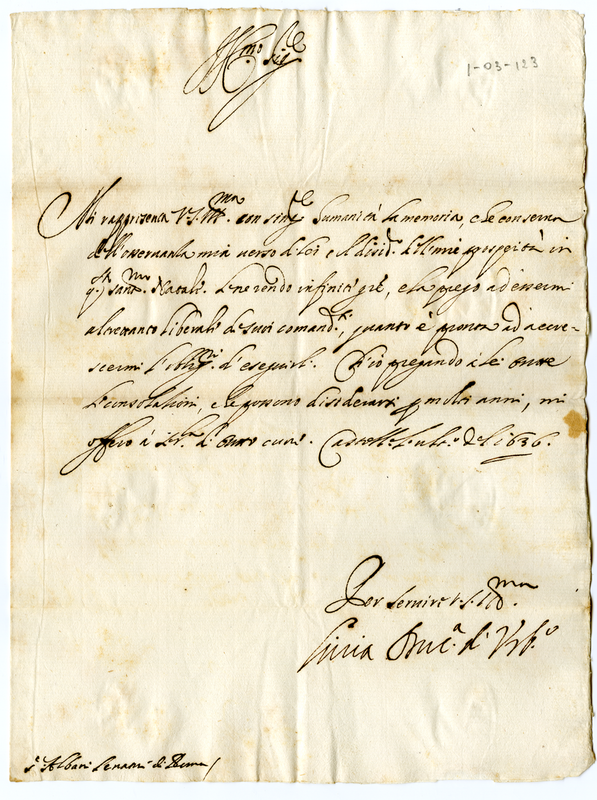 Ill.mo Sig.re
1-03-123
Mi rappresenta V.S. Ill.ma con sing.re humanità la memoria, che conserva
dell'osservanza mia verso di lei e il disid.o dell'mie prosperità in
q.sto sant.mo Natale. Le ne rendo infinite gre, e la prego ad essermi
altrettanto liberale de suoi comand.ti, quanto è pronta ad accre-
scermi l'oblig. d'eseguirli. Et io pregando à lei
le consolationi, che possono disiderarsi p molti anni, mi
offero à di cuore. Castell. li 1636.
Per servire V.S. Ill.ma
Livia Duc.a d'Urb.o
S.r Albani Senator di Roma